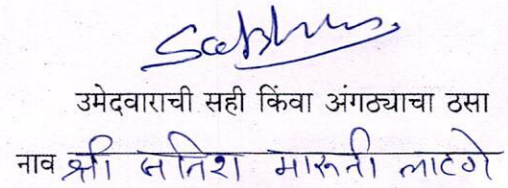 उमेदवाराची सही किंवा अंगठ्याचा ठसा
नाव श्री सतिश मारूती लाटगे